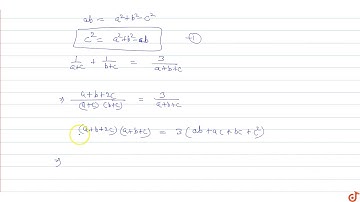 ab = a²+b²-c²
c² = a²+b²-ab ①
1/(a+c) + 1/(b+c) = 3/(a+b+c)
⇒ (a+b+2c)/((a+c)(b+c)) = 3/(a+b+c)
(a+b+2c)(a+b+c) = 3(ab+ac+bc+c²)
⇒